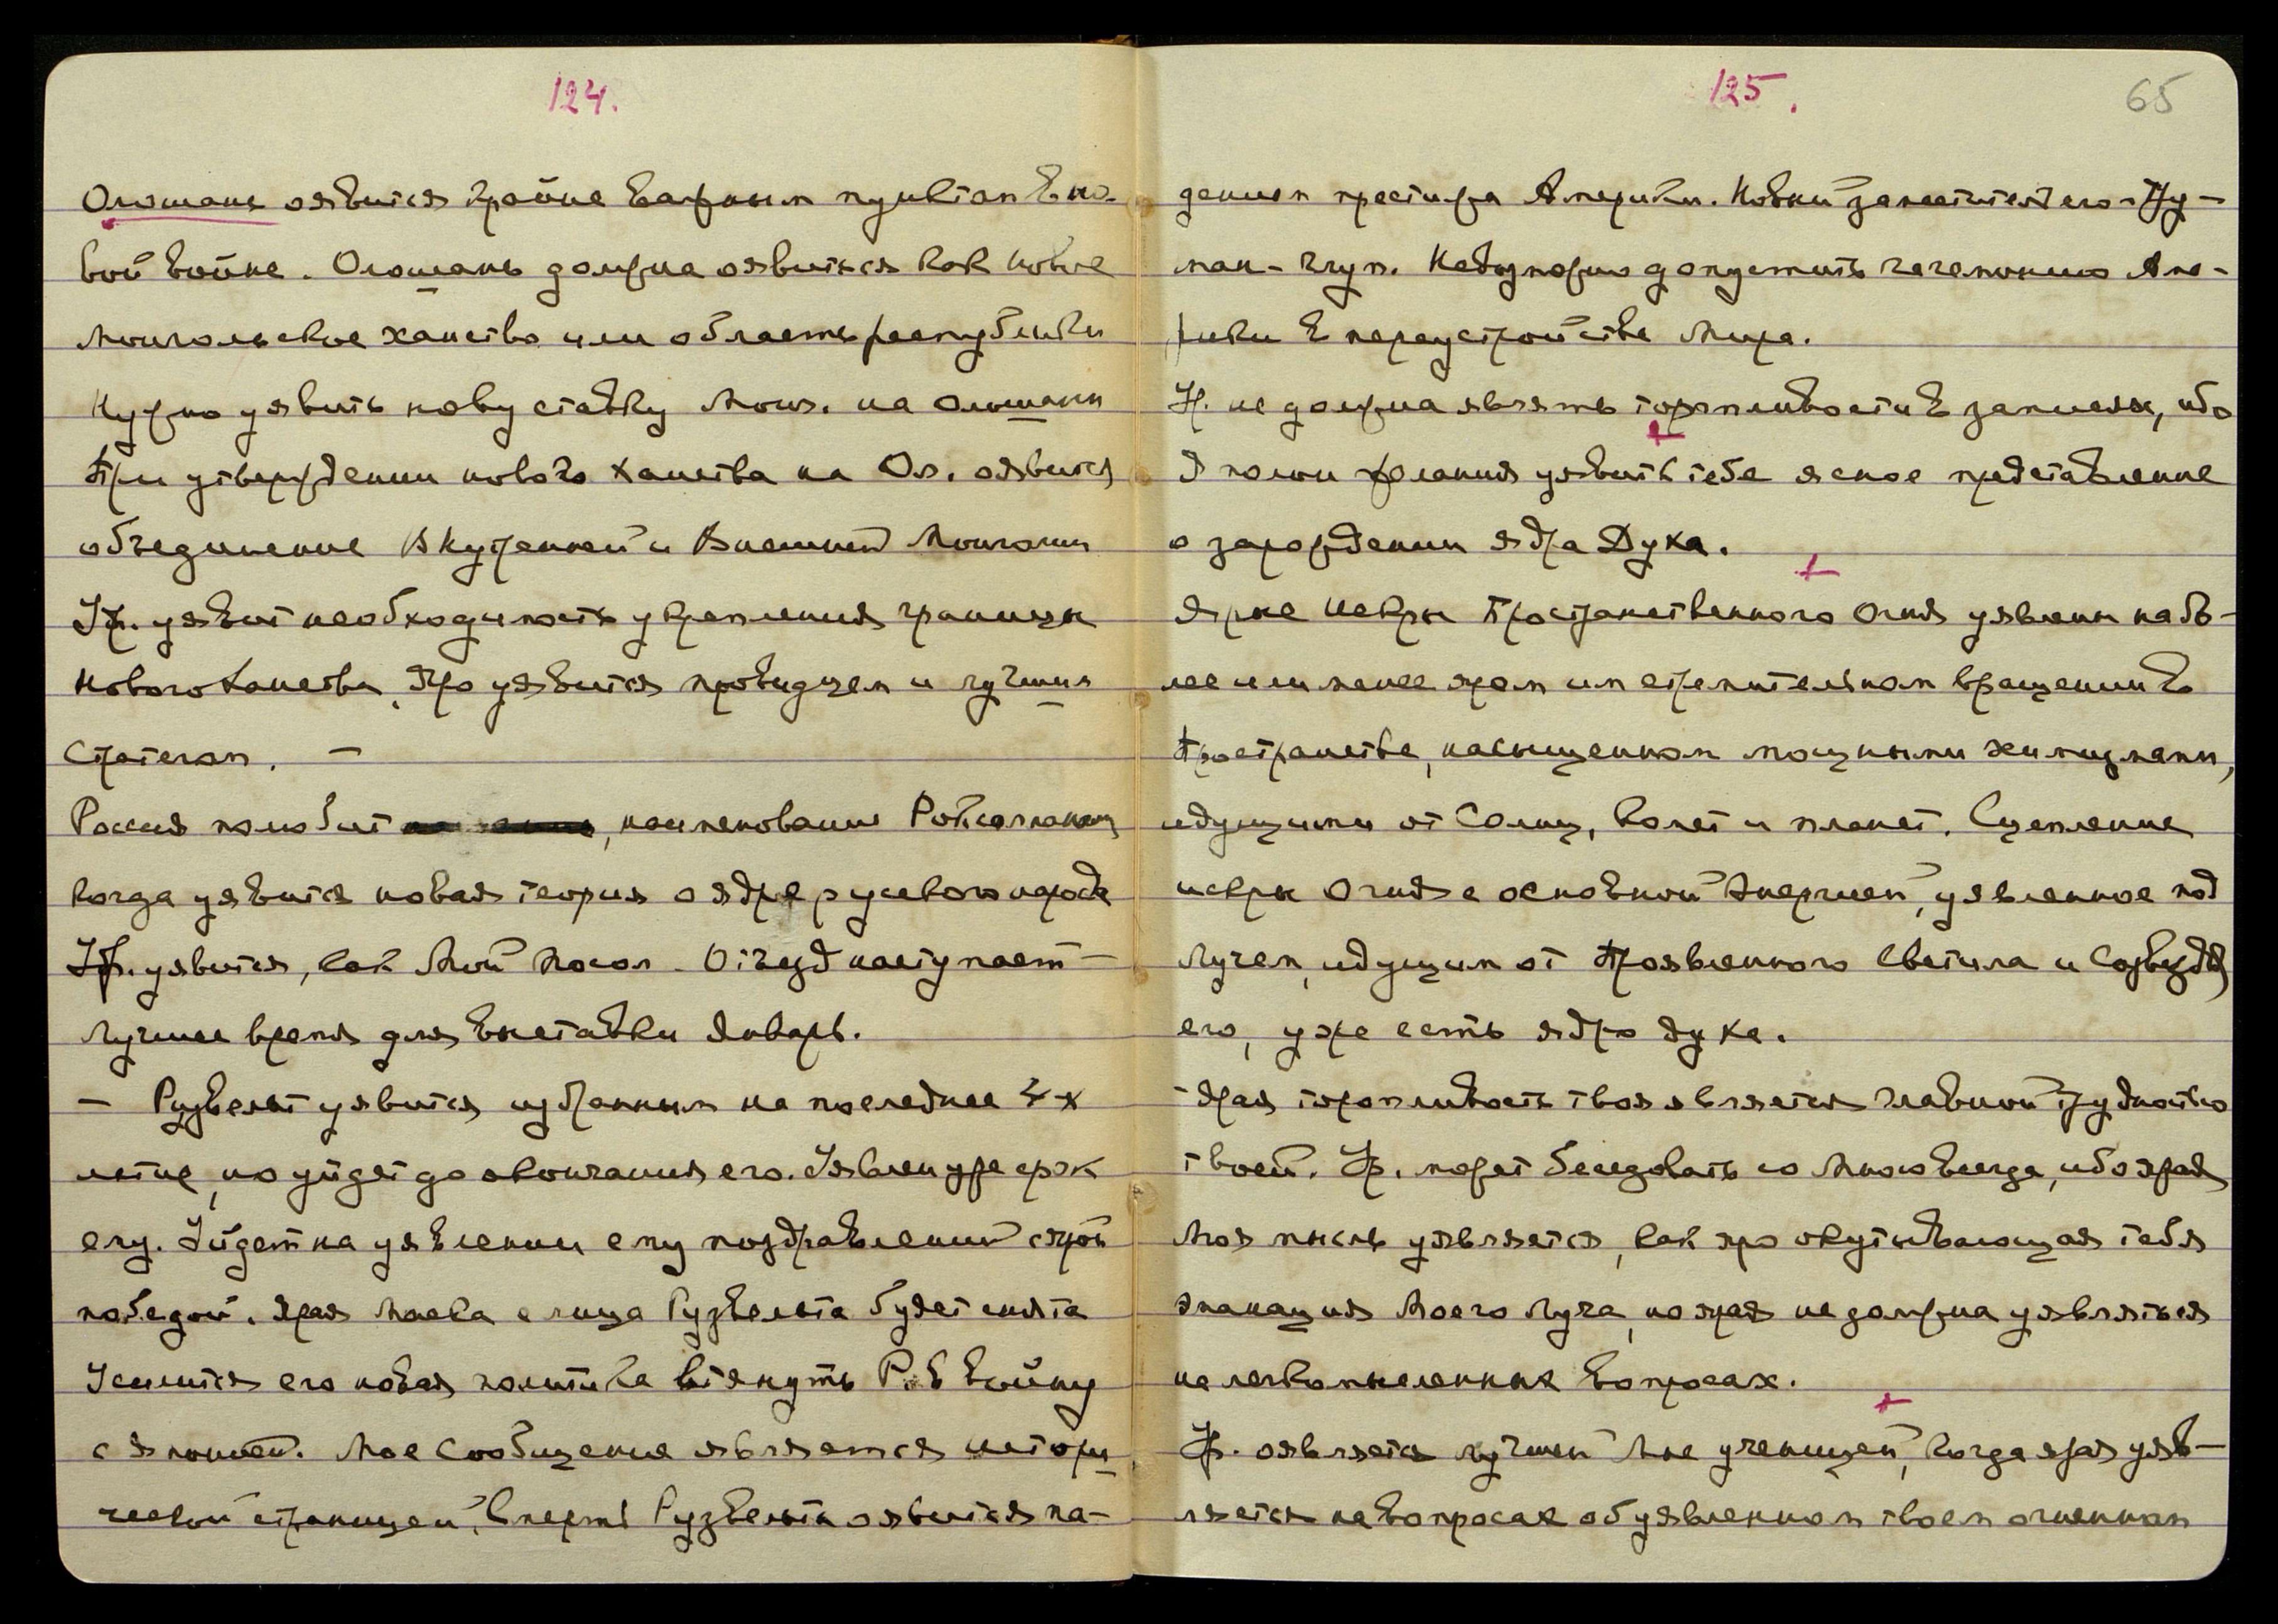 124.
Олошань оявится крайне важным пунктом в но-
вой войне. Олошань должна оявиться как новое
Монгольское ханство или область республики
Нужно уявить нову ставку Монг. на Олошани
При утверждении нового Ханства на Ол. оявится
объединение Внутренней и Внешней Монголии
Ур. уявит необходимость укрепления границы
Нового Ханства, Яро уявится провидцем и лучшим
Стратегом. –
Россия полюбит наименование
когда уявится новая теория о ядре русского народа
Ур. уявится, как Мой Посол. Отъезд наступает –
Лучшее время для выставки Январь.
– Рузвельт уявится избранным на последнее 4-х
летие, но уйдет до окончания его. Уявлен уже срок
ему. Уйдет на уявлении ему поздравлений с ярой
победой. Ярая Маска с лица Рузвельта будет снята
Усилится его новая политика втянуть Р. в войну
с Японией. Мое Сообщение является истори
ческой страницей, Смерть Рузвельта оявится па-
125.
65
дением престижа Америки. Новый заместитель его – Тру-
ман – глуп. Невозможно допустить гегемонию Аме-
рики в переустройстве Мира.
Ур. не должна являть торопливости в записях, ибо
Я полон желания уявить тебе ясное представление
о зарождении ядра Духа.
Ярые Искры Пространственного Огня уявлены на бо-
лее или менее яром им стремительном вращении в
Пространстве, насыщенном мощными химизмами,
идущими от Солнц, Комет и планет. Сцепление
искры Огня с основной Энергией, уявленное под
Лучем, идущим от Проявленного Светила и Созвездия
его, уже есть ядро духа.
– Ярая торопливость твоя является главной трудностью
твоей. Ур. может беседовать со Мною всегда, ибо ярая
Моя мысль уявляется, как яро окутывающая тебя
эманация Моего Луча, но ярая не должна уявляться
на легкомысленных вопросах.
Ур. оявляется лучшей Мне ученицей, когда ярая уяв-
ляется на вопросах об уявленном твоем огненном